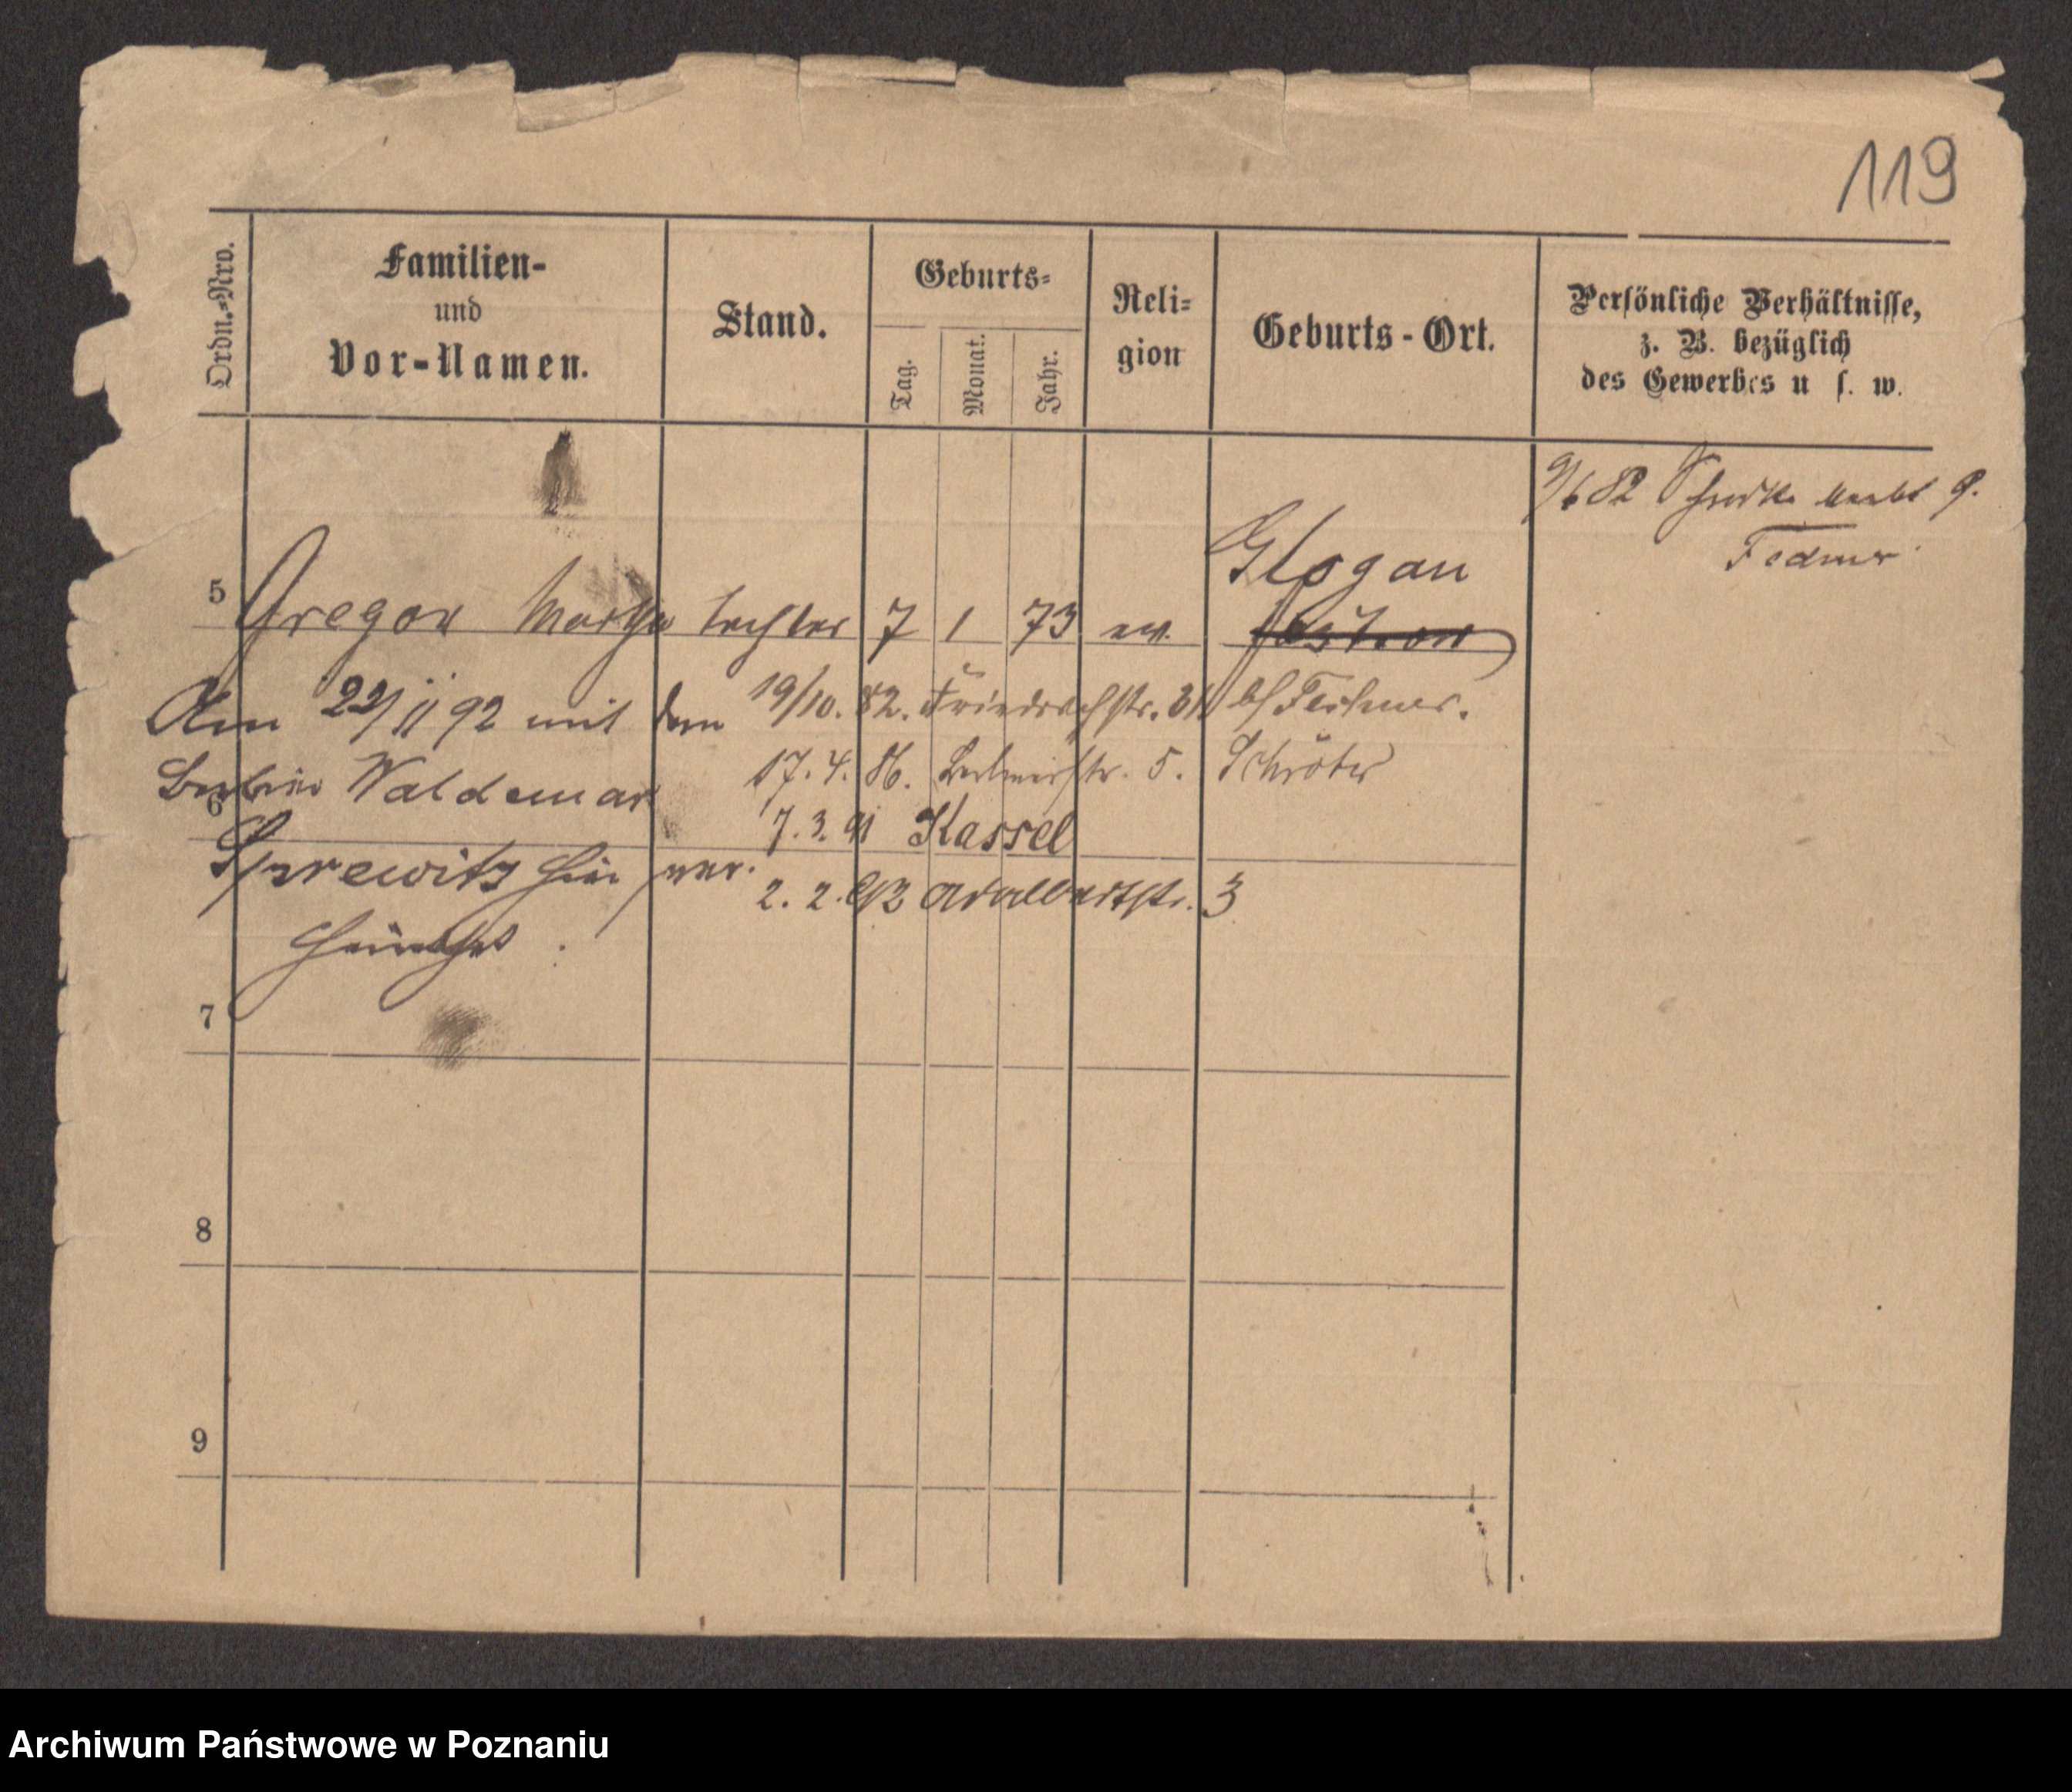 119
Ordn.=Nro.
Familien-
und
Vor-Namen.
Stand.
Geburts=
Tag.
Monat.
Jahr.
Reli=
gion
Geburts-Ort.
Persönliche Verhältnisse,
z. B. bezüglich
des Gewerbes u s. w.
9/6 82
5 Gregor Martha Tochter 7 1 73 ev. Glogau
Am 22/11 92 mit dem
19/10. 82. Friedrichstr. 31 bei
Waldemar
17. 4. 86. 5. Schröter
6
7. 3. 91 Kassel
hier
2. 2. 92 Adalbertstr. 3
7
8
9
Archiwum Państwowe w Poznaniu